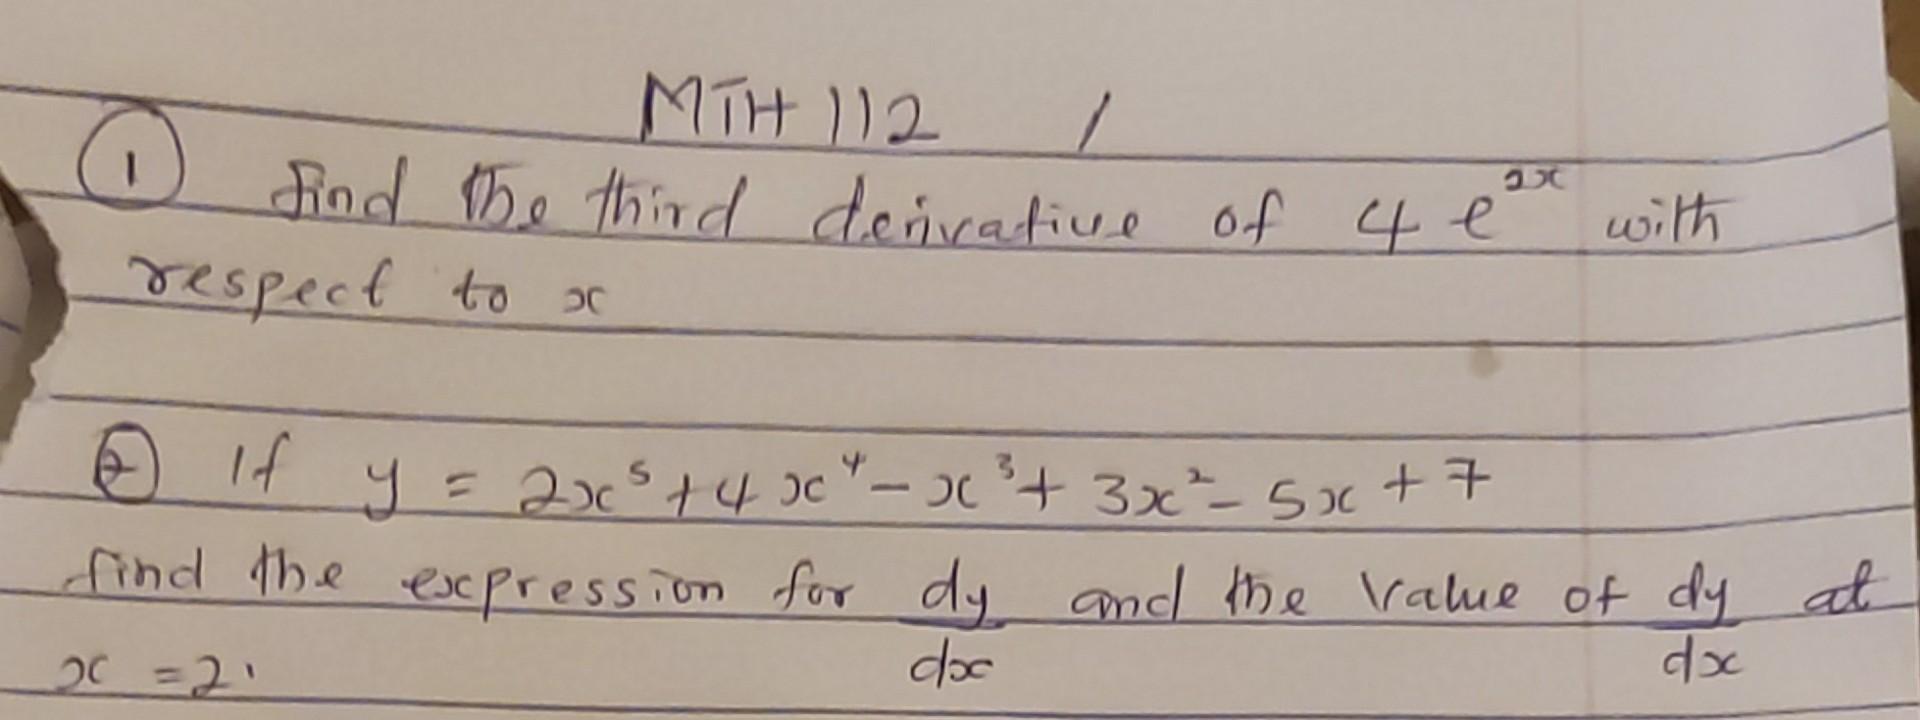 MTH 112 /
① find the third derivative of 4 e²ˣ with
respect to x
② If y = 2x⁵ + 4x⁴ - x³ + 3x² - 5x + 7
find the expression for dy/dx and the value of dy/dx at
x = 2.